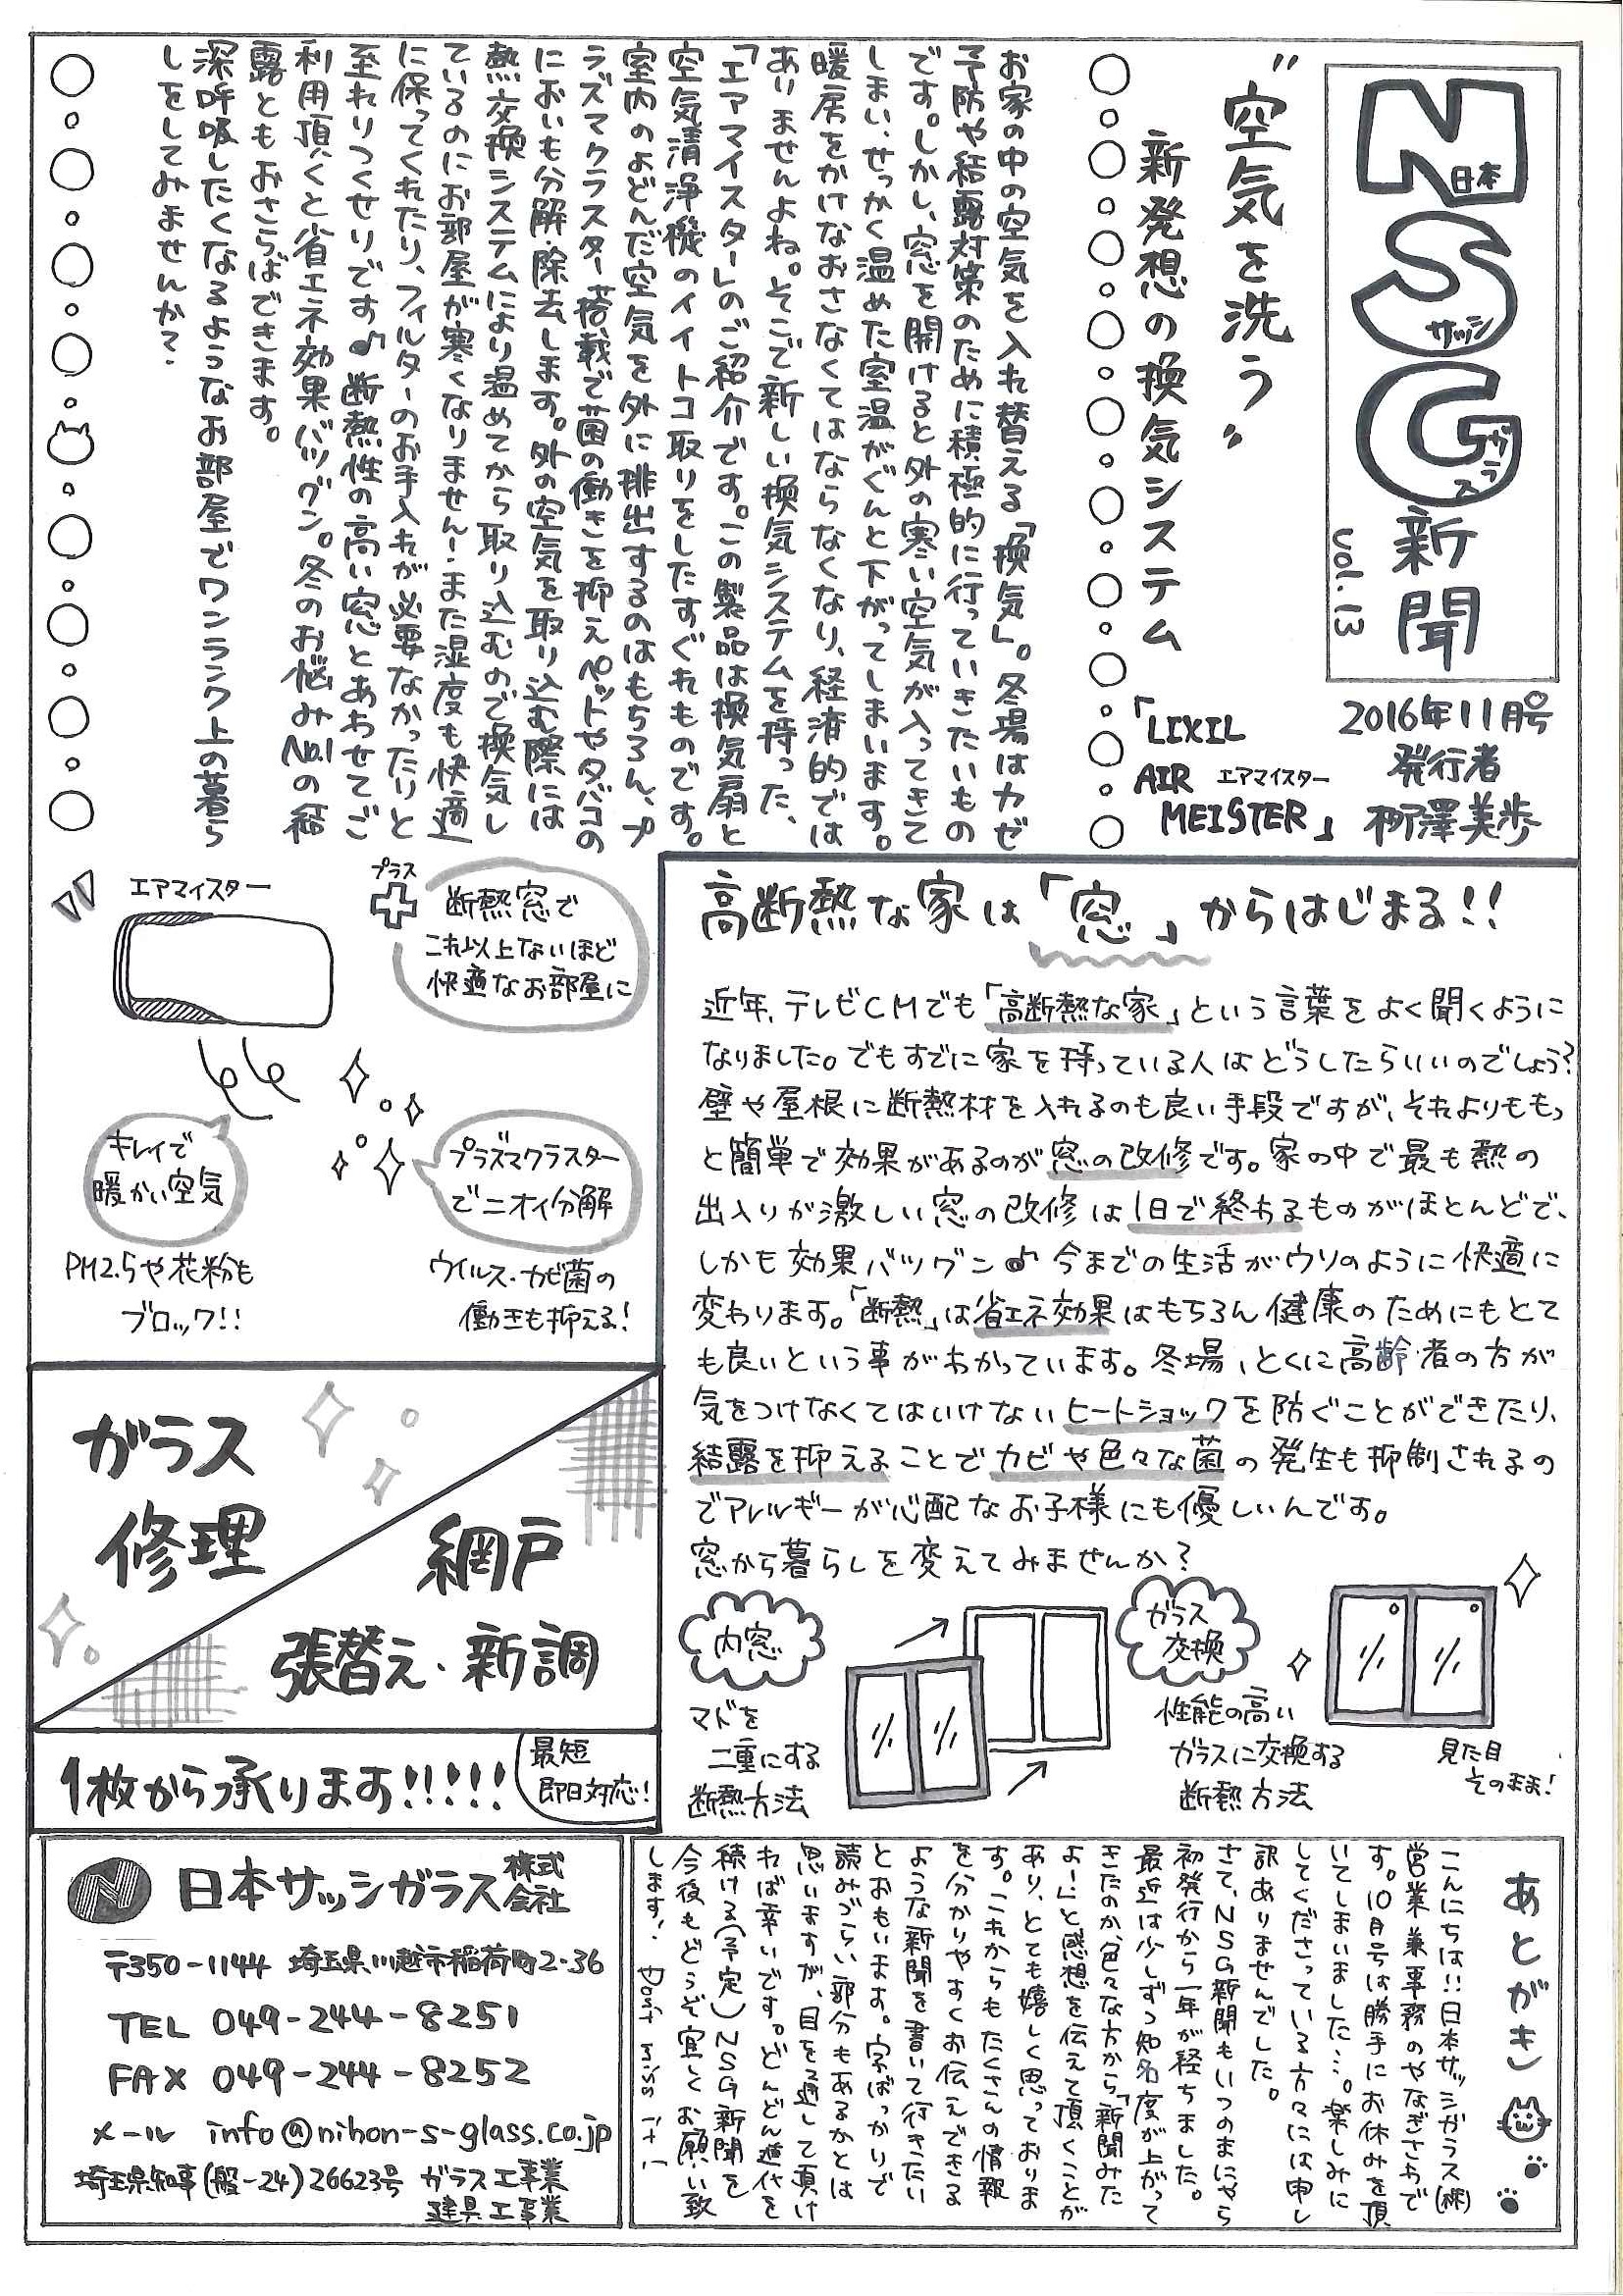 NSG新聞
日本
サッシ
ガラス
vol.13
2016年11月号
発行者
栁澤美歩
"空気を洗う"
新発想の換気システム
「LIXIL
AIR エアマイスター
MEISTER」
お家の中の空気を入れ替える「換気」。冬場はカゼ
予防や結露対策のために積極的に行っていきたいもの
です。しかし、窓を開けると外の寒い空気が入ってきて
しまい、せっかく温めた室温がぐんと下がってしまいます。
暖房をかけなおさなくてはならなくなり、経済的では
ありませんよね。そこで新しい換気システムを持った、
「エアマイスター」のご紹介です。この製品は換気扇と
空気清浄機のイイトコ取りをしたすぐれものです。
室内のよどんだ空気を外に排出するのはもちろん、プ
ラズマクラスター搭載で菌の働きを抑えペットやタバコの
においも分解・除去します。外の空気を取り込む際には
熱交換システムにより温めてから取り込むので換気し
ているのにお部屋が寒くなりません!また湿度も快適
に保ってくれたり、フィルターのお手入れが必要なかったりと
至れりつくせりです♪断熱性の高い窓とあわせてご
利用頂くと省エネ効果バツグン。冬のお悩みNo.1の結
露ともおさらばできます。
深呼吸したくなるようなお部屋でワンランク上の暮ら
しをしてみませんか?
エアマイスター
プラス
断熱窓で
これ以上ないほど
快適なお部屋に
キレイで
暖かい空気
PM2.5や花粉も
ブロック!!
プラズマクラスター
でニオイ分解
ウイルス・カビ菌の
働きも抑える!
高断熱な家は「窓」からはじまる!!
近年、テレビCMでも「高断熱な家」という言葉をよく聞くように
なりました。でもすでに家を持っている人はどうしたらいいのでしょう?
壁や屋根に断熱材を入れるのも良い手段ですが、それよりももっ
と簡単で効果があるのが窓の改修です。家の中で最も熱の
出入りが激しい窓の改修は1日で終わるものがほとんどで、
しかも効果バツグン♪今までの生活がウソのように快適に
変わります。「断熱」は省エネ効果はもちろん健康のためにもとて
も良いという事がわかっています。冬場、とくに高齢者の方が
気をつけなくてはいけないヒートショックを防ぐことができたり、
結露を抑えることでカビや色々な菌の発生も抑制されるの
でアレルギーが心配なお子様にも優しいんです。
窓から暮らしを変えてみませんか?
内窓
マドを
二重にする
断熱方法
ガラス
交換
性能の高い
ガラスに交換する
断熱方法
見た目
そのまま!
ガラス
修理
網戸
張替え・新調
1枚から承ります!!!!!
最短
即日対応!
日本サッシガラス株式会社
〒350-1144 埼玉県川越市稲荷町2-36
TEL 049-244-8251
FAX 049-244-8252
メール info@nihon-s-glass.co.jp
埼玉県知事(般-24)26623号 ガラス工事業
建具工事業
あとがき
こんにちは!!日本サッシガラス(株)
営業兼事務のやなぎさわで
す。10月号は勝手にお休みを頂
いてしまいました…。楽しみに
してくださっている方々には申し
訳ありませんでした。
さて、NSG新聞もいつのまにやら
初発行から一年が経ちました。
最近は少しずつ知名度が上がって
きたのか、色々な方から「新聞みた
よー」と感想を伝えて頂くことが
あり、とても嬉しく思っておりま
す。これからもたくさんの情報
を分かりやすくお伝えできる
ような新聞を書いて行きたい
とおもいます。字ばっかりで
読みづらい部分もあるかとは
思いますが、目を通して頂け
れば幸いです。どんどん進化を
続ける(予定)NSG新聞を
今後もどうぞ宜しくお願い致
します!